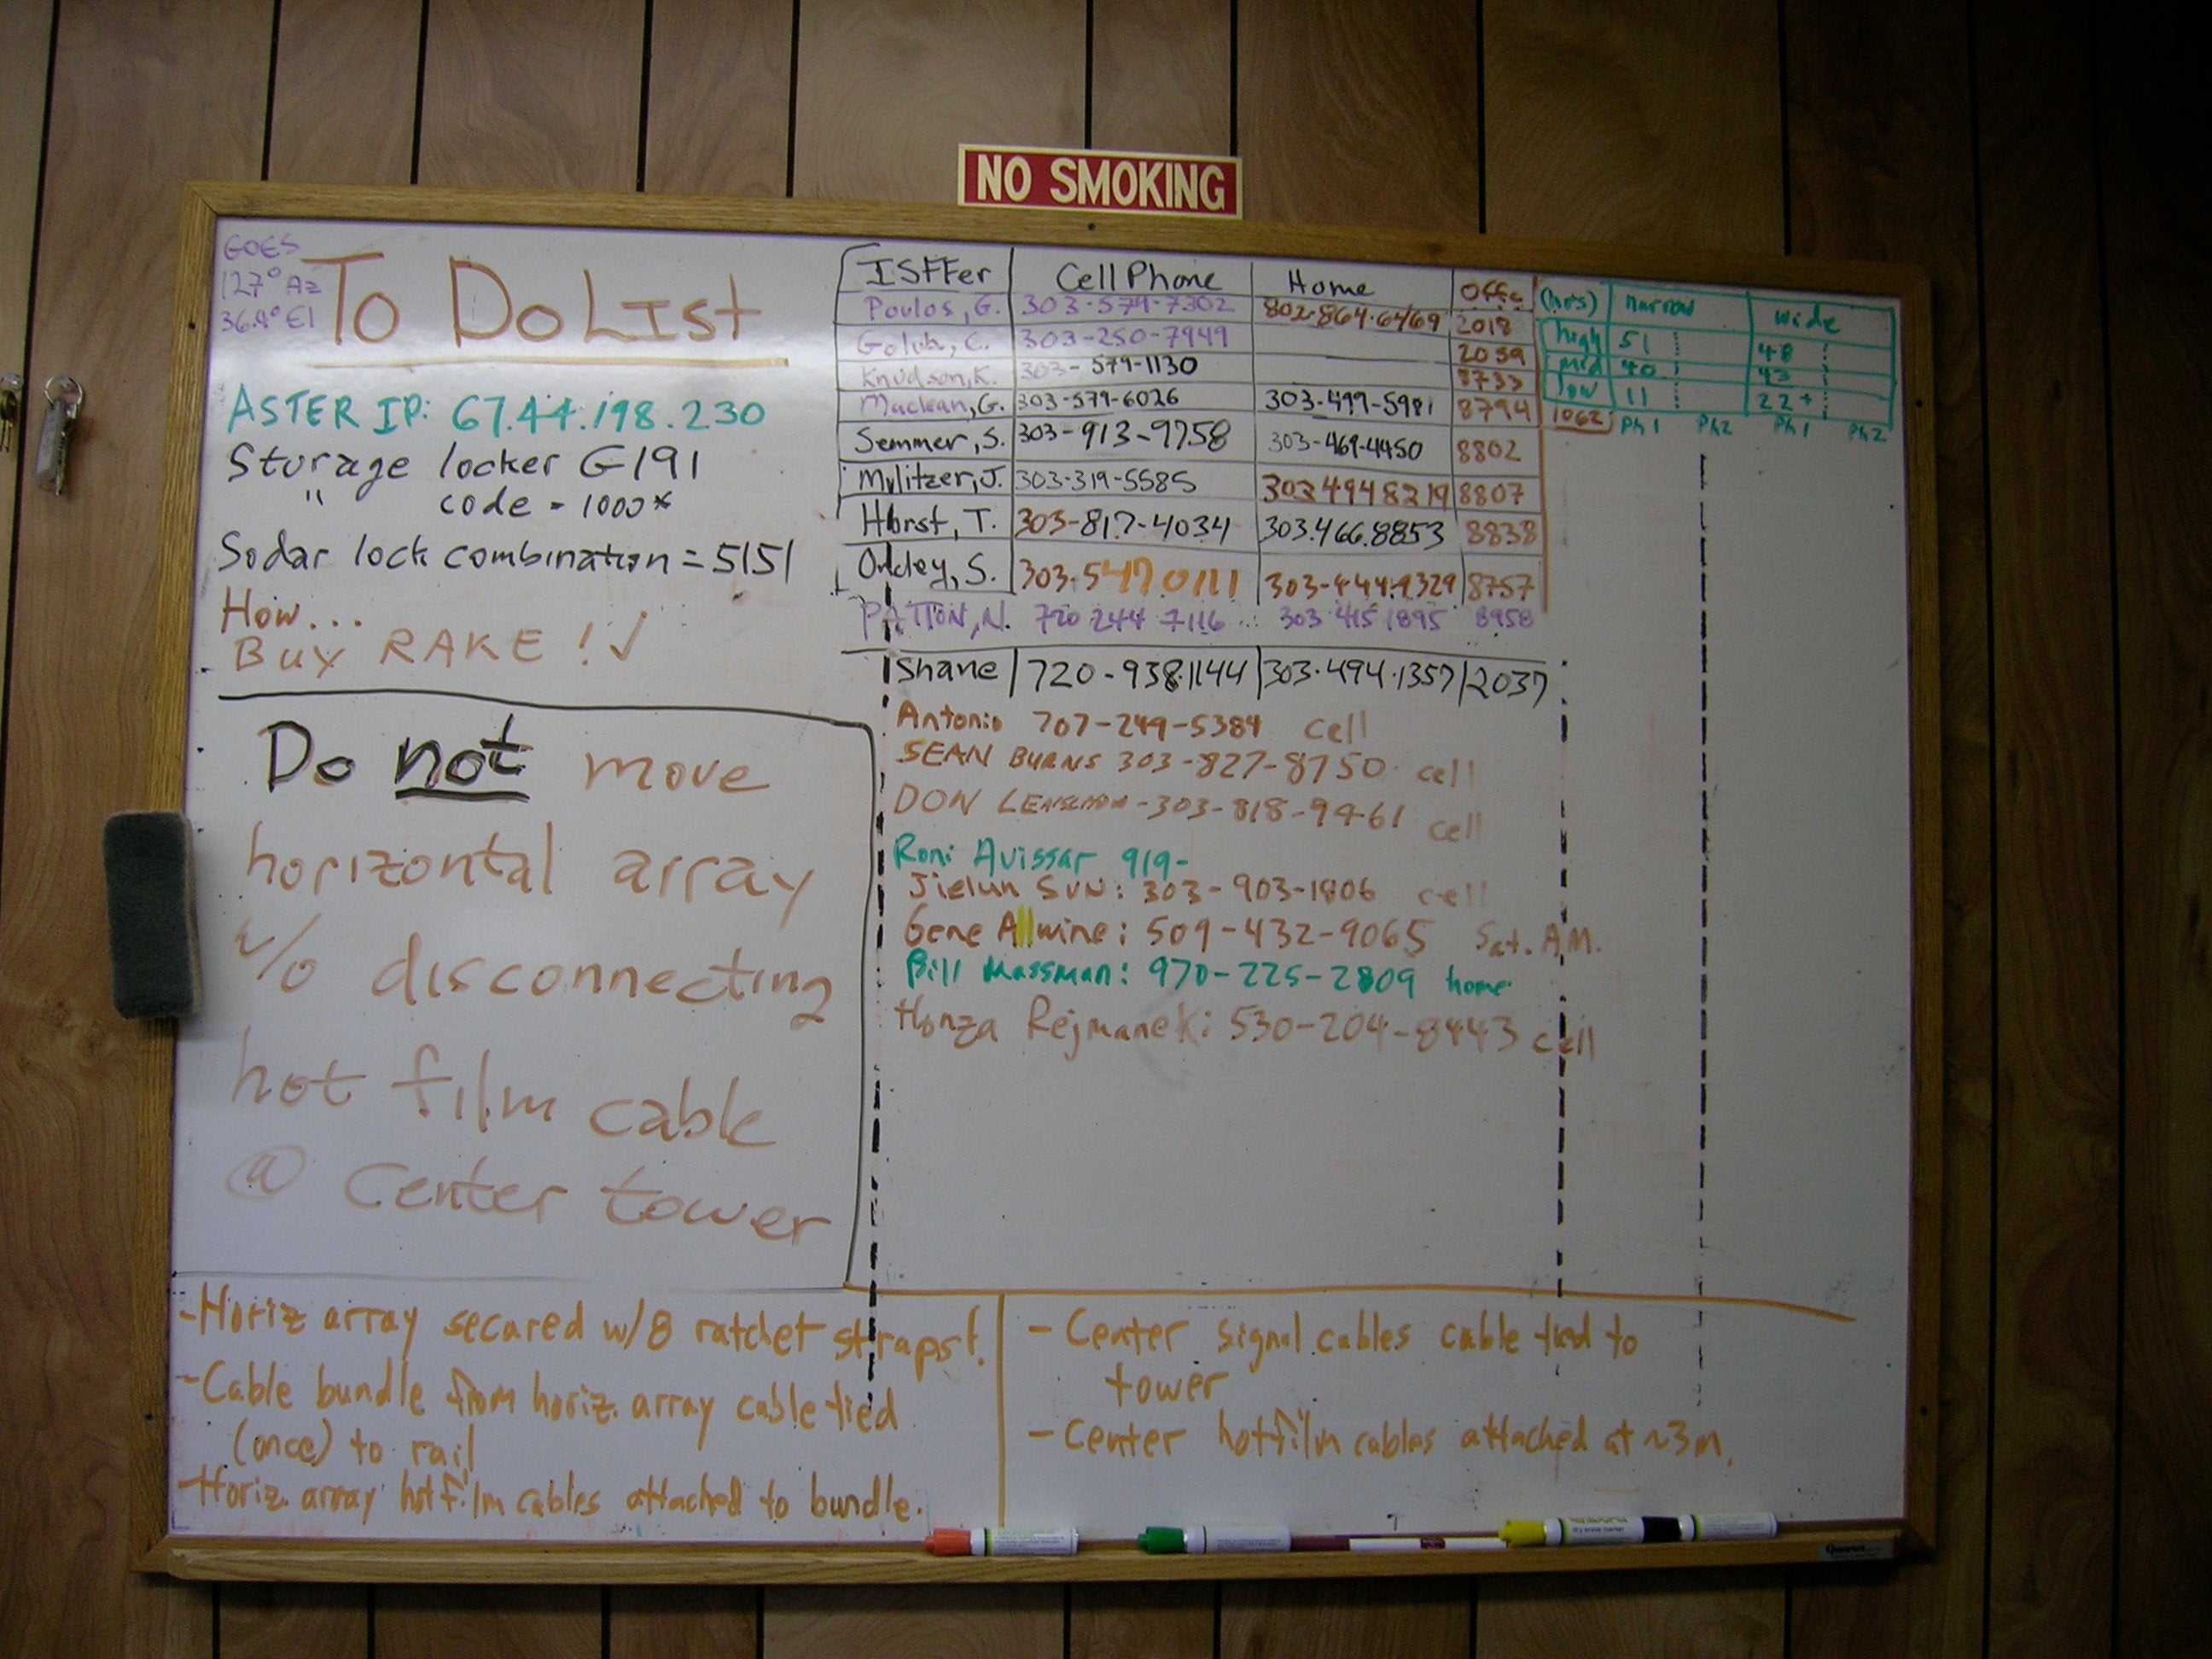 NO SMOKING
GOES
127° Az
36.9° El
To Do List
ASTER IP: 67.44.198.230
Storage locker G191
" code - 1000*
Sodar lock combination = 5151
How...
Buy RAKE ! ✓
Do not move
horizontal array
w/o disconnecting
hot film cable
@ center tower
ISFFer Cell Phone Home Offc
Poulos, G. 303-579-7302 802-864-6469 2018
Golub, C. 303-250-7949 2059
Knudson, K. 303-579-1130 8733
Maclean, G. 303-579-6026 303-499-5981 8794
Semmer, S. 303-913-9758 303-469-4450 8802
Militzer, J. 303-319-5585 303 494 8219 8807
Horst, T. 303-817-4034 303.466.8853 8838
Oncley, S. 303-547 0111 303-444-9329 8757
PATTON, N. 720 244 7116 303 415 1895 8958
Shane 720-938.1144 303.494.1357 2037
(hrs) narrow wide
high 51 48
mid 40 43
low 11 22+
1062 Ph1 Ph2 Ph1 Ph2
Antonio 707-249-5384 cell
SEAN BURNS 303-827-8750 cell
DON LENSCHOW-303-818-9461 cell
Roni Avissar 919-
Jielun SUN: 303-903-1806 cell
Gene Allwine: 509-432-9065 Sat. A.M.
Bill Massman: 970-225-2809 home
Honza Rejmanek: 530-204-8443 cell
- Horiz array secared w/8 ratchet straps!
- Cable bundle from horiz. array cable tied
(once) to rail
- Horiz. array hot film cables attached to bundle.
- Center signal cables cable tied to
tower
- Center hotfilm cables attached at ~3m.
Quartet